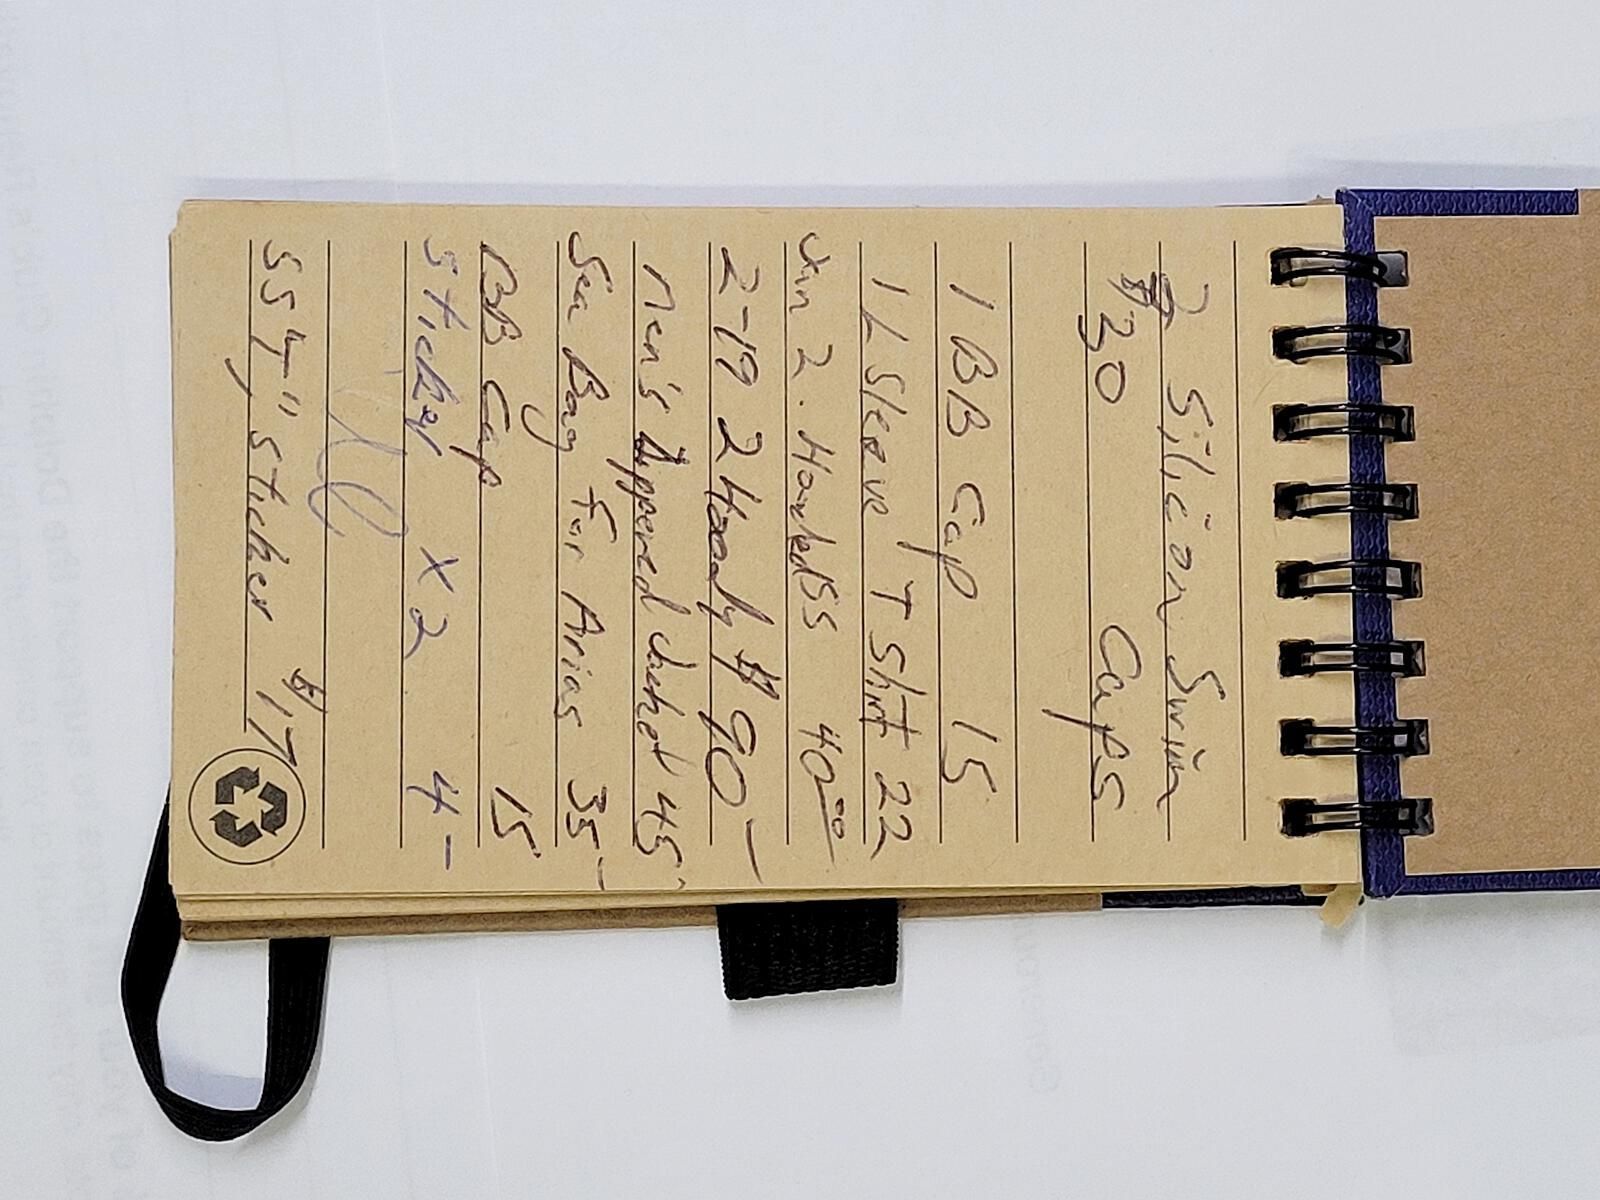 2 Silicon Swim
$30 Caps
1 BB Cap 15
1 L Sleeve T Shirt 22
Jan 2. 40⁰⁰
2-19 2 Hoody $ 90-
Men's Zippered Jacket 45-
Sea Bag For Arias 35-
BB Cap 15
Sticker x 2 4-
5 5 4," Sticker $17